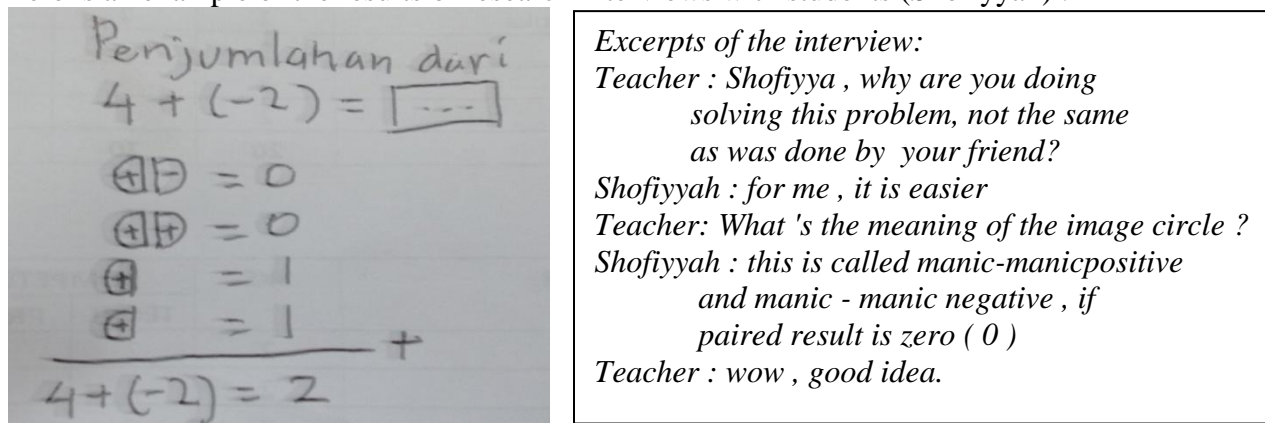 Penjumlahan dari
4 + (-2) = ...
+ - = 0
+ + = 0
+ = 1
+ = 1
+
4 + (-2) = 2
Excerpts of the interview:
Teacher : Shofiyya , why are you doing
solving this problem, not the same
as was done by your friend?
Shofiyyah : for me , it is easier
Teacher: What 's the meaning of the image circle ?
Shofiyyah : this is called manic-manicpositive
and manic - manic negative , if
paired result is zero ( 0 )
Teacher : wow , good idea.